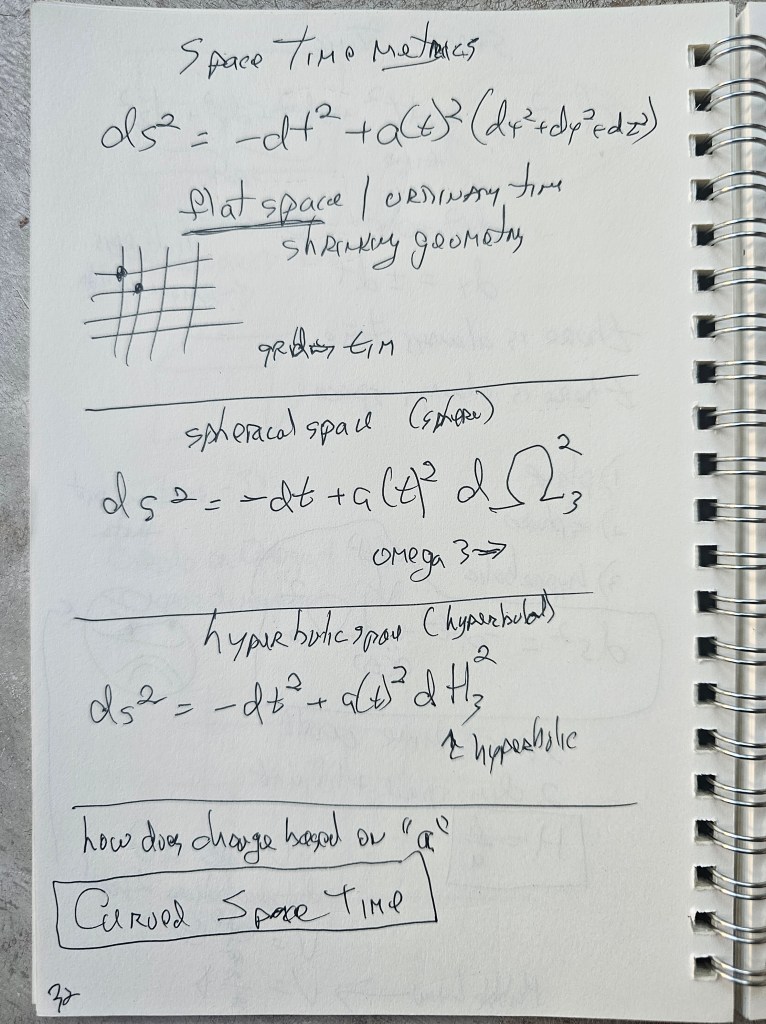 Space Time Metrics
ds² = -dt² + a(t)² (dx²+dy²+dz²)
flat space / ORDINARY time
shrinking geometry
spherical space (sphere)
ds² = -dt + a(t)² dΩ₃²
omega 3 →
hyperbolic space (hyperboloid)
ds² = -dt² + a(t)² dH₃²
↑ hyperbolic
how does change based on "a"
Curved Space Time
32